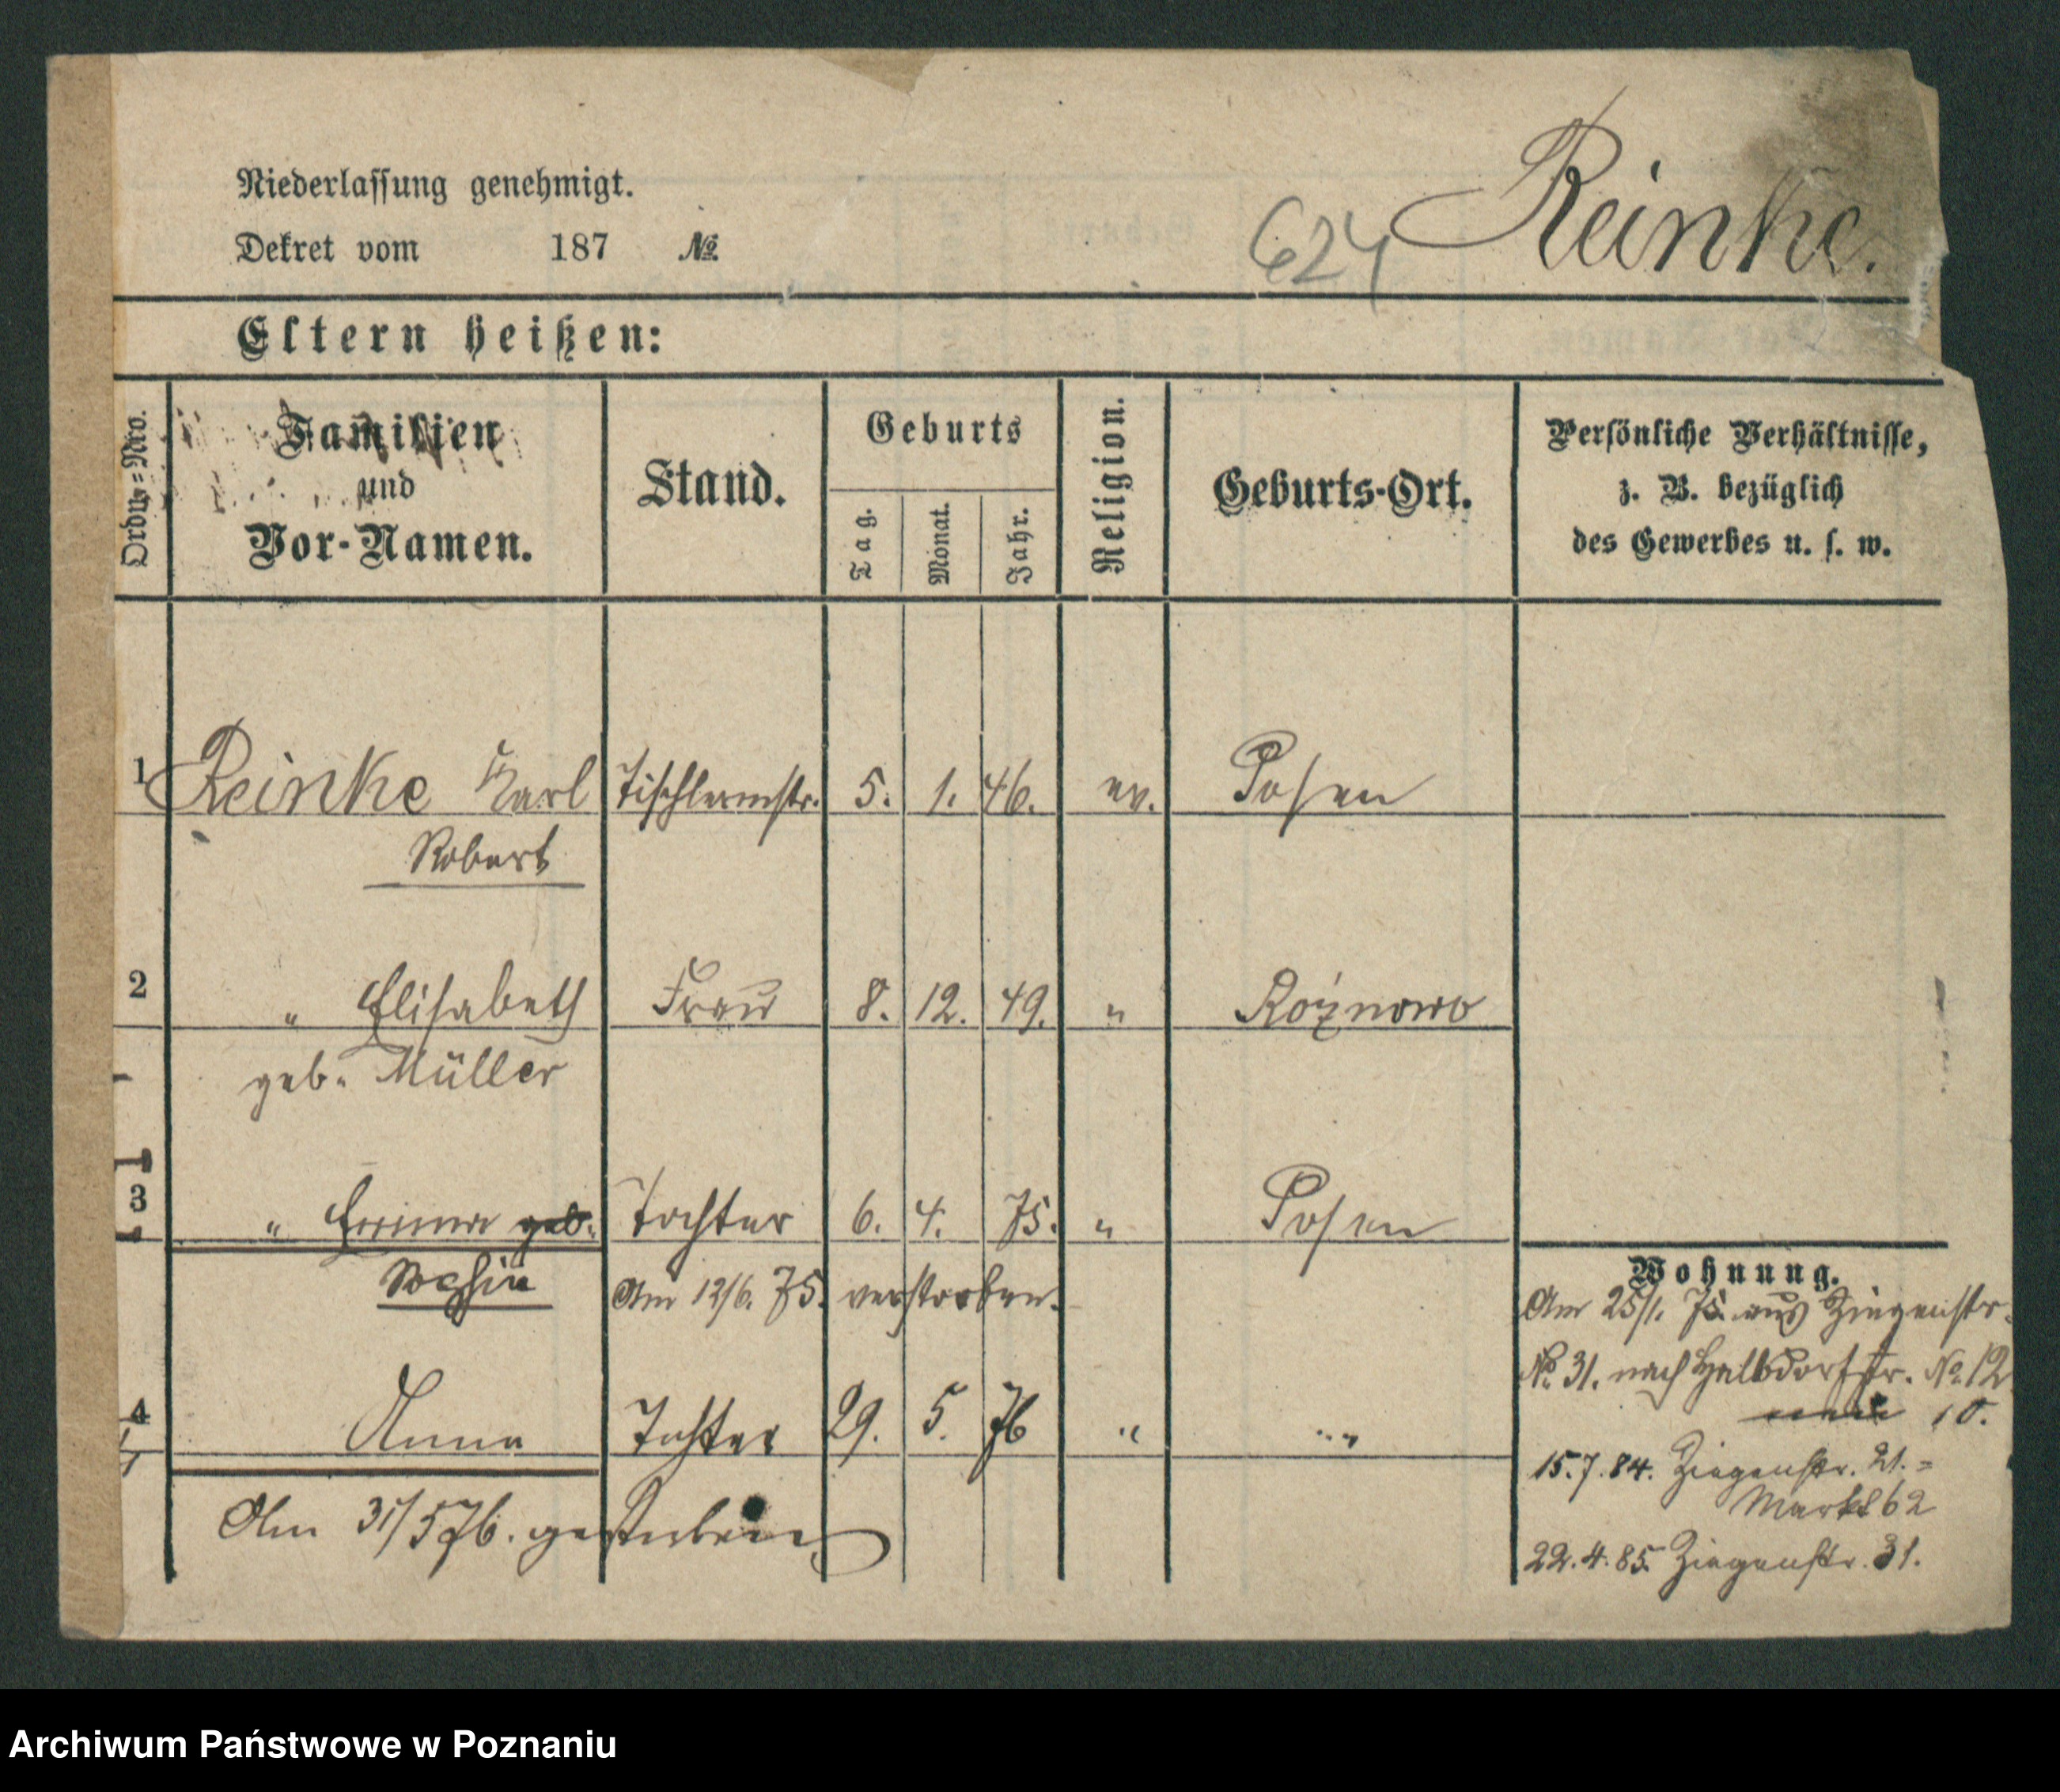 Niederlassung genehmigt.
Dekret vom 187 №
624 Reinke.
Eltern heißen:
Ordn.=Nro.
Familien
und
Vor-Namen.
Stand.
Geburts
Tag.
Monat.
Jahr.
Religion.
Geburts-Ort.
Persönliche Verhältnisse,
z. B. bezüglich
des Gewerbes u. s. w.
1 Reinke Karl Tischlermstr. 5. 1. 46. ev. Posen
Robert
2 " Elisabeth Frau 8. 12. 49. " Rożnowo
geb. Müller
3 " Emma geb. Tochter 6. 4. 75. " Posen
Am 12/6. 75. verstorben.
Wohnung.
Am 25/1. 75 aus Ziegenstr.
№ 31. nach Halbdorfstr. № 12
10.
4 Anna Tochter 29. 5. 76 " "
15.7.84. Ziegenstr. 21. =
Markt 62
Am 31/5 76. gestorben
22.4.85. Ziegenstr. 31.
Archiwum Państwowe w Poznaniu